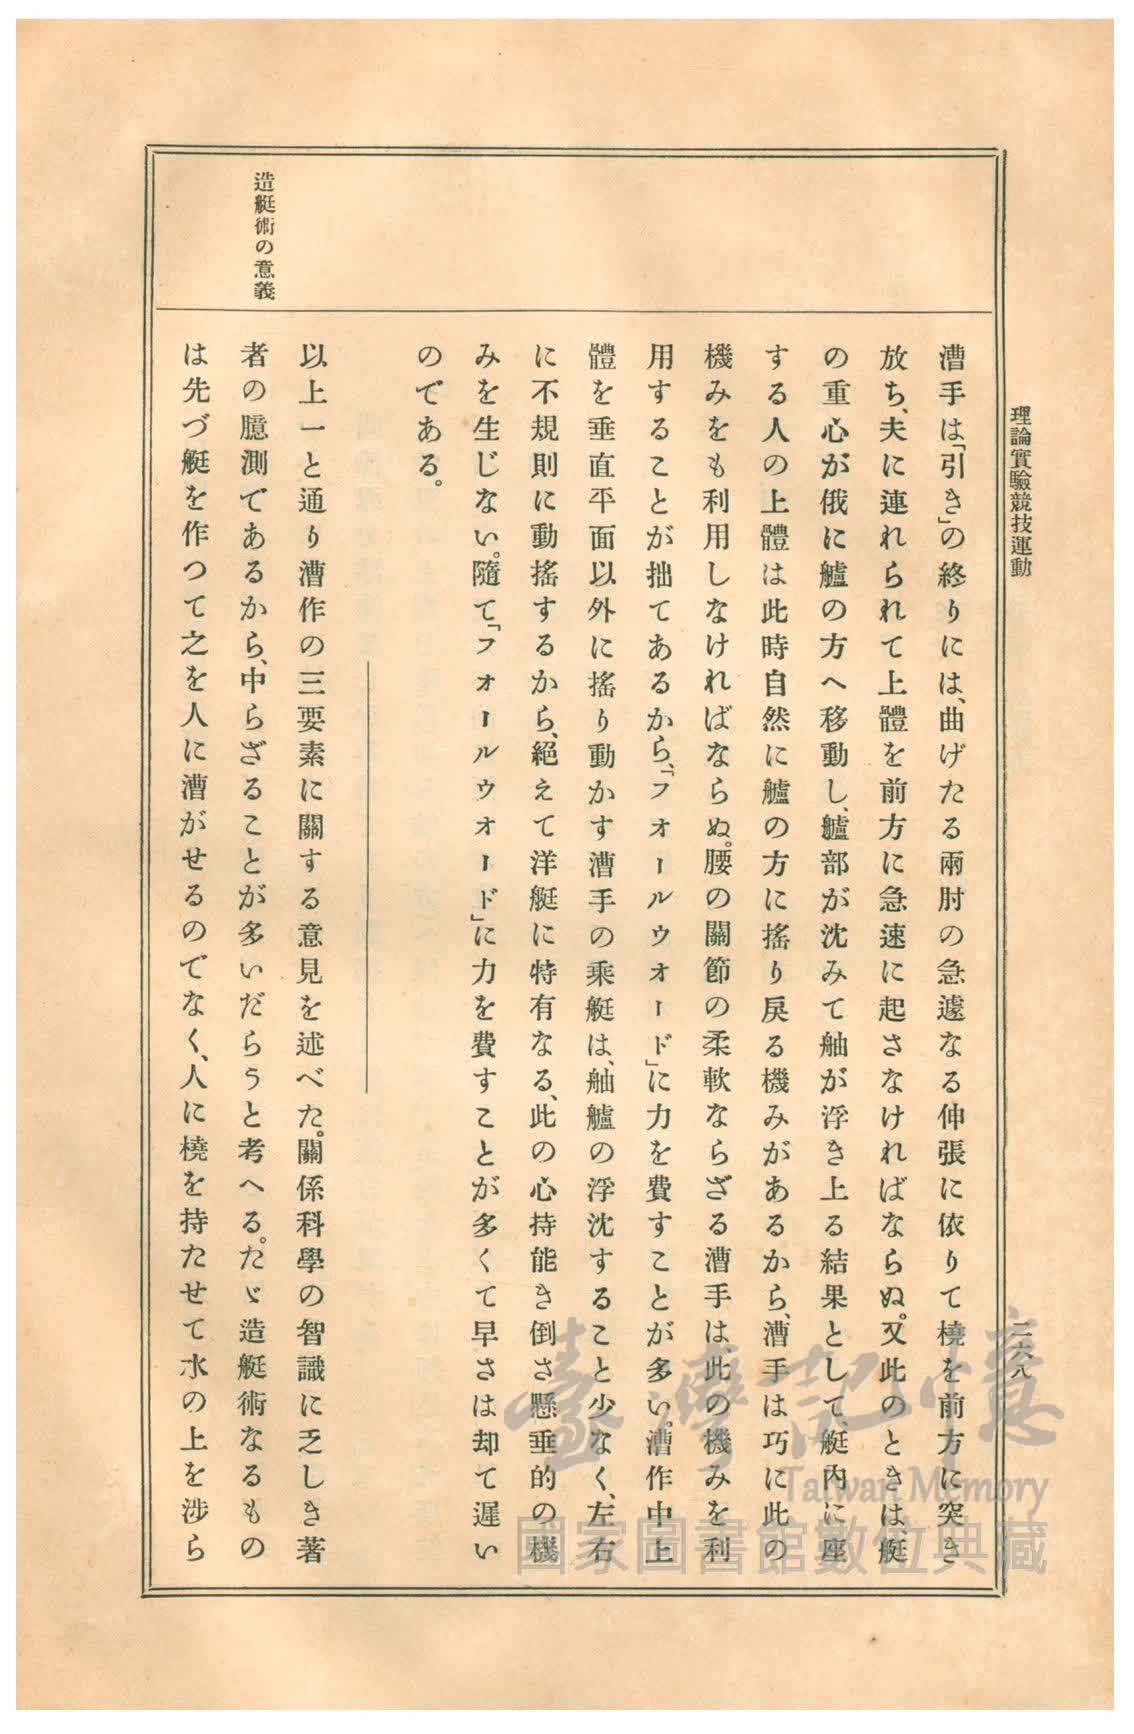 理論實驗競技運動
二六八
漕手は「引き」の終りには、曲げたる兩肘の急遽なる伸張に依りて橈を前方に突き
放ち、夫に連れられて上體を前方に急速に起さなければならぬ。又此のときは、艇
の重心が俄に艫の方へ移動し、艫部が沈みて舳が浮き上る結果として、艇內に座
する人の上體は此時自然に艫の方に搖り戾る機みがあるから、漕手は巧に此の
機みをも利用しなければならぬ。腰の關節の柔軟ならざる漕手は此の機みを利
用することが拙てあるから、「フオールウオード」に力を費すことが多い。漕作中上
體を垂直平面以外に搖り動かす漕手の乘艇は、舳艫の浮沈すること少なく、左右
に不規則に動搖するから、絕えて洋艇に特有なる、此の心持能き倒さ懸垂的の機
みを生じない。隨て「フォールウオード」に力を費すことが多くて早さは却て遲い
のである。
造艇術の意義
以上一と通り漕作の三要素に關する意見を述べた。關係科學の智識に乏しき著
者の臆測であるから、中らざることが多いだらうと考へる。たゞ造艇術なるもの
は先づ艇を作つて之を人に漕がせるのでなく、人に橈を持たせて水の上を涉ら
臺灣記憶
Taiwan Memory
國家圖書館數位典藏